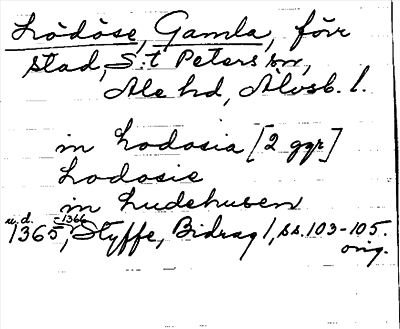 Lödöse, Gamla, förr
stad, S:t Peters sn,
Ale hd, Älvsb. l.
in Lodosia [2 ggr]
Lodosie
in Ludehusen
u.d. -1366
1365, Styffe, Bidrag 1, ss. 103-105.
orig.